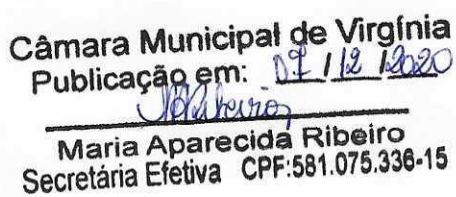 Câmara Municipal de Virgínia
Publicação em: 07 / 12 / 2020
MARibeiro
Maria Aparecida Ribeiro
Secretária Efetiva CPF:581.075.336-15